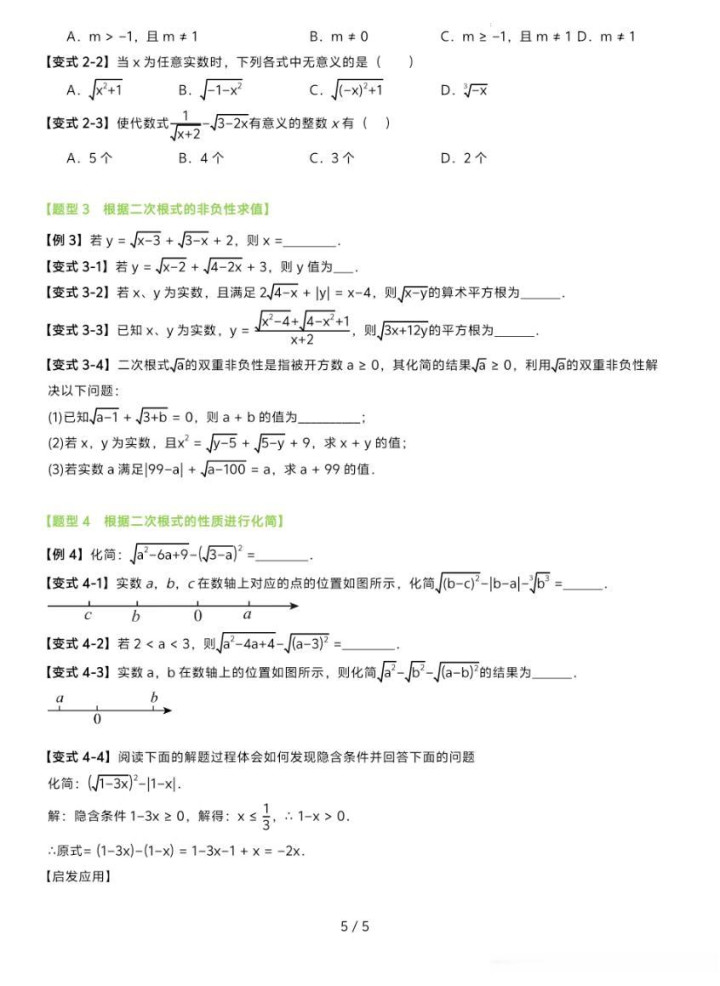 A. m > -1，且 m ≠ 1 B. m ≠ 0 C. m ≥ -1，且 m ≠ 1 D. m ≠ 1
【变式 2-2】当 x 为任意实数时，下列各式中无意义的是（ ）
A. √(x²+1) B. √(-1-x²) C. √((-x)²+1) D. ³√(-x)
【变式 2-3】使代数式 1/√(x+2) - √(3-2x)有意义的整数 x 有（ ）
A. 5 个 B. 4 个 C. 3 个 D. 2 个
【题型 3 根据二次根式的非负性求值】
【例 3】若 y = √(x-3) + √(3-x) + 2，则 x =________.
【变式 3-1】若 y = √(x-2) + √(4-2x) + 3，则 y 值为___.
【变式 3-2】若 x、y 为实数，且满足 2√(4-x) + |y| = x-4，则√(x-y)的算术平方根为______.
【变式 3-3】已知 x、y 为实数，y = (√(x²-4)+√(4-x²)+1)/(x+2)，则√(3x+12y)的平方根为______.
【变式 3-4】二次根式√a的双重非负性是指被开方数 a ≥ 0，其化简的结果√a ≥ 0，利用√a的双重非负性解
决以下问题：
(1)已知√(a-1) + √(3+b) = 0，则 a + b 的值为_________；
(2)若 x，y 为实数，且x² = √(y-5) + √(5-y) + 9，求 x + y 的值；
(3)若实数 a 满足|99-a| + √(a-100) = a，求 a + 99 的值.
【题型 4 根据二次根式的性质进行化简】
【例 4】化简：√(a²-6a+9)-(√(3-a))² =________.
【变式 4-1】实数 a，b，c 在数轴上对应的点的位置如图所示，化简√((b-c)²)-|b-a|-³√(b³) =______.
c b 0 a
【变式 4-2】若 2 < a < 3，则√(a²-4a+4)-√((a-3)²) =________.
【变式 4-3】实数 a，b 在数轴上的位置如图所示，则化简√(a²)-√(b²)-√((a-b)²)的结果为______.
a b
0
【变式 4-4】阅读下面的解题过程体会如何发现隐含条件并回答下面的问题
化简：(√(1-3x))²-|1-x|.
解：隐含条件 1-3x ≥ 0，解得：x ≤ 1/3，∴ 1-x > 0.
∴原式= (1-3x)-(1-x) = 1-3x-1 + x = -2x.
【启发应用】
5 / 5